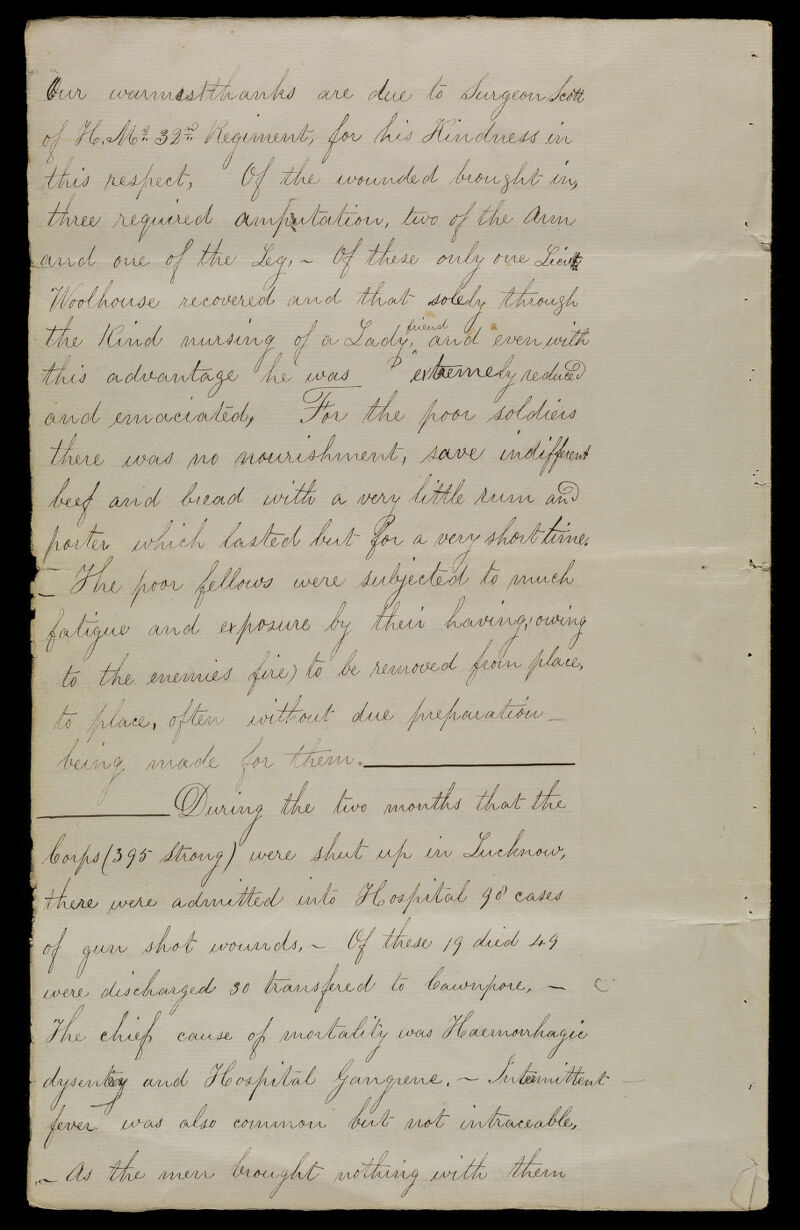 Our warmest thanks are due to Surgeon Scott
of H. Ms. 32nd Regiment, for his Kindness in
this respect, Of the wounded brought in,
three required amputation, two of the Arm
and one of the Leg. - Of these only one Lieut
Woolhouse recovered and that solely through
the Kind nursing of a Lady friend, and even with
this advantage he was extremely reduced
and emaciated, For the poor soldiers
there was no nourishment, save indifferent
beef and bread with a very little rum and
porter which lasted but for a very short time.
- The poor fellows were subjected to much
fatigue and exposure by their having, owing
to the enemies fire) to be removed from place,
to place, often without due preparation -
being made for them.
During the two months that the
Corps (395 strong) were shut up in Lucknow,
there were admitted into Hospital 98 cases
of gun shot wounds. - Of these 19 died 49
were discharged 30 transfered to Cawnpore. -
The chief cause of mortality was Haemorrhagic
dysentery and Hospital Gangrene. - Intermittent
fever was also common but not intraceable,
- As the men brought nothing with them